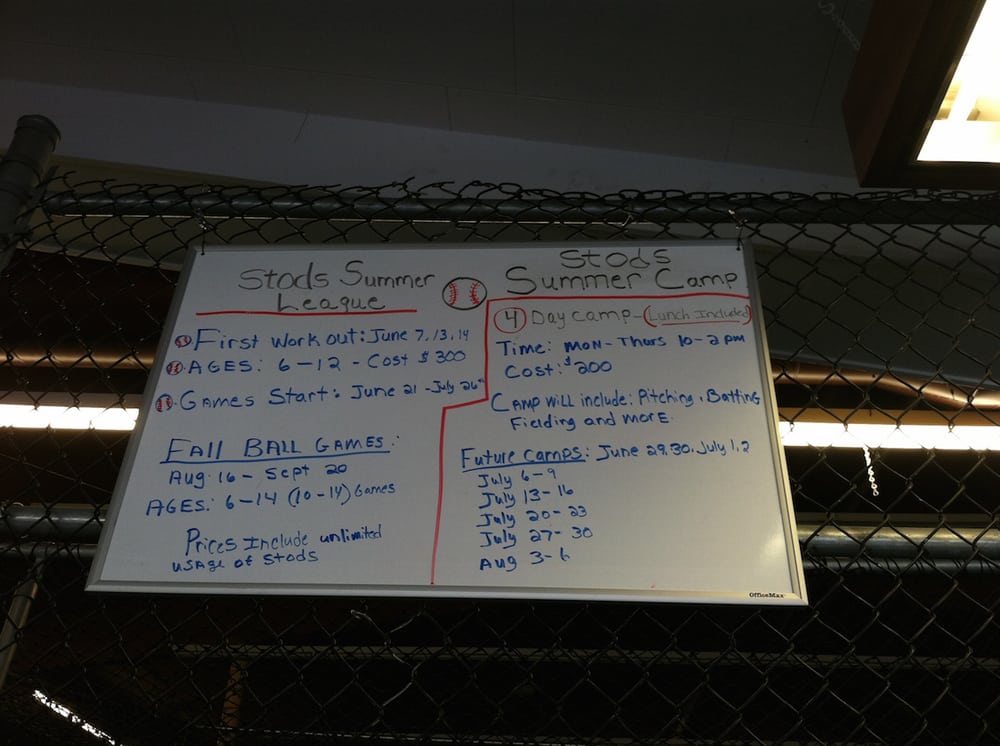 Stods Summer
League
First Work out: June 7, 13, 14
AGES: 6-12 - Cost $300
Games Start: June 21 - July 26th
FAll BAll GAMES:
Aug 16 - Sept 20
AGES: 6-14 (10-14) Games
Prices Include unlimited
usage of Stods
Stods
Summer Camp
4 Day camp - (Lunch Included)
Time: MON - Thurs 10-2 pm
Cost: $200
CAMP will include: Pitching, Batting
Fielding and more.
Future camps: June 29, 30, July 1, 2
July 6-9
July 13-16
July 20-23
July 27-30
Aug 3-6
OfficeMax